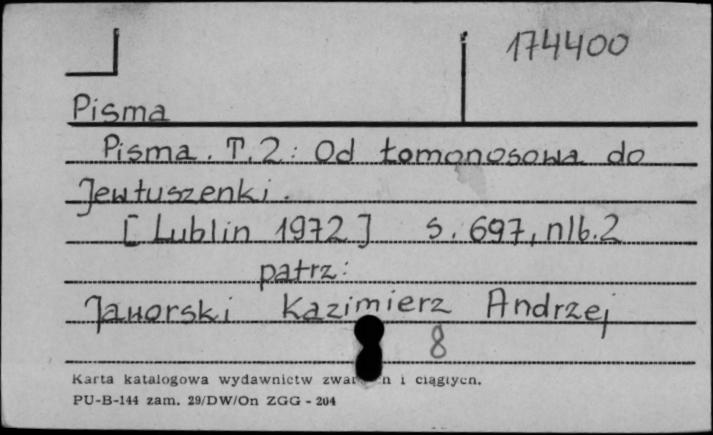 174400
Pisma
Pisma. T.2: Od Łomonosowa do
Jewtuszenki.
[Lublin 1972] s. 697, nlb.2
patrz:
Jaworski Kazimierz Andrzej
8
Karta katalogowa wydawnictw i ciągłych.
PU-B-144 zam. 29/DW/On ZGG - 204